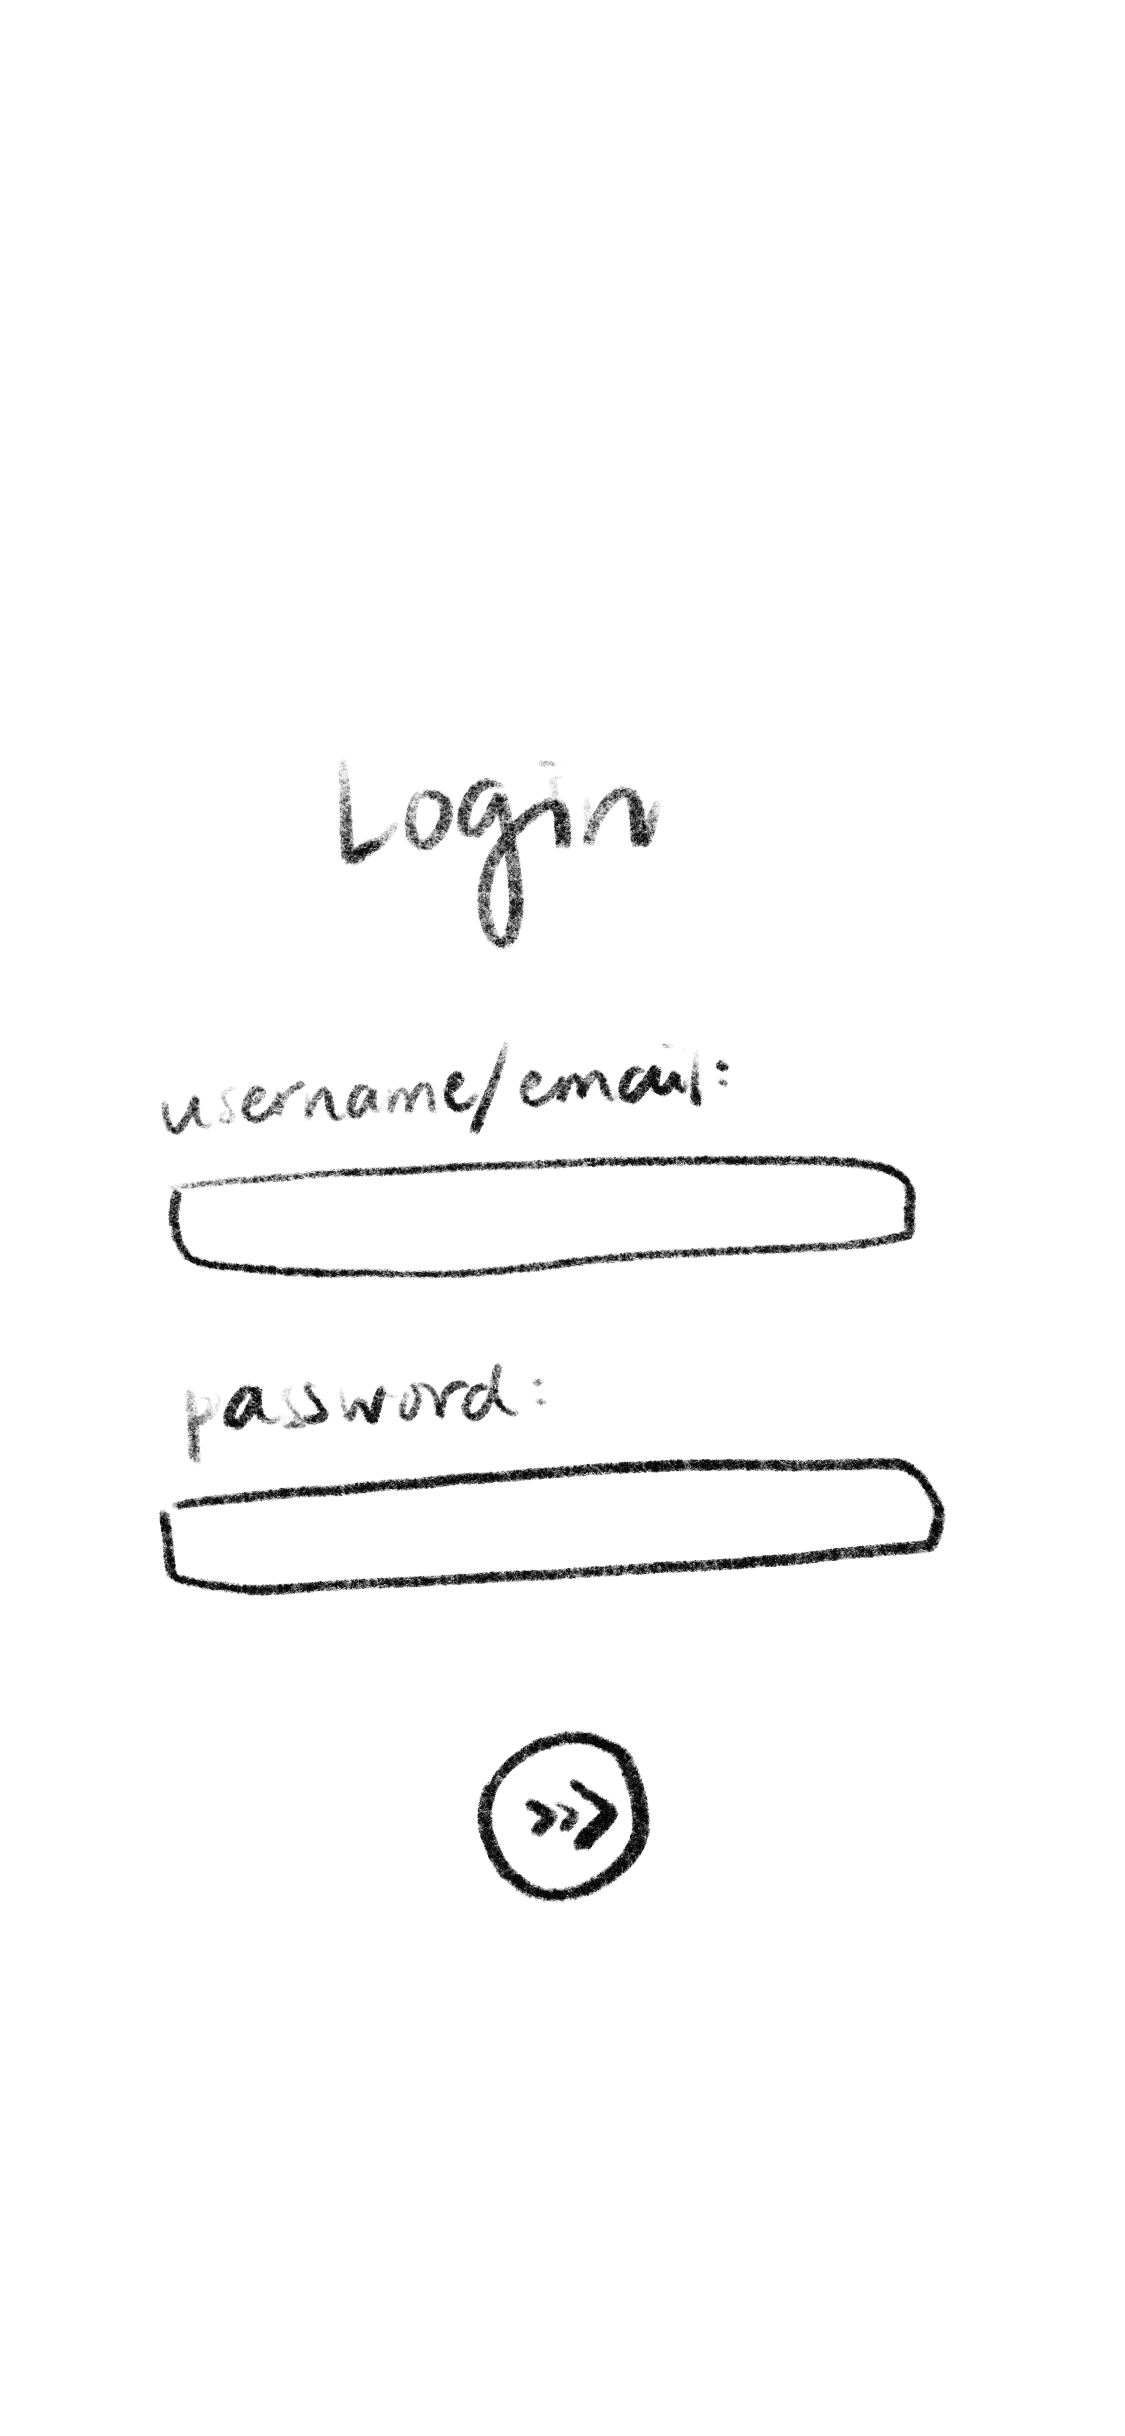 Login
username/email:
password:
>>>